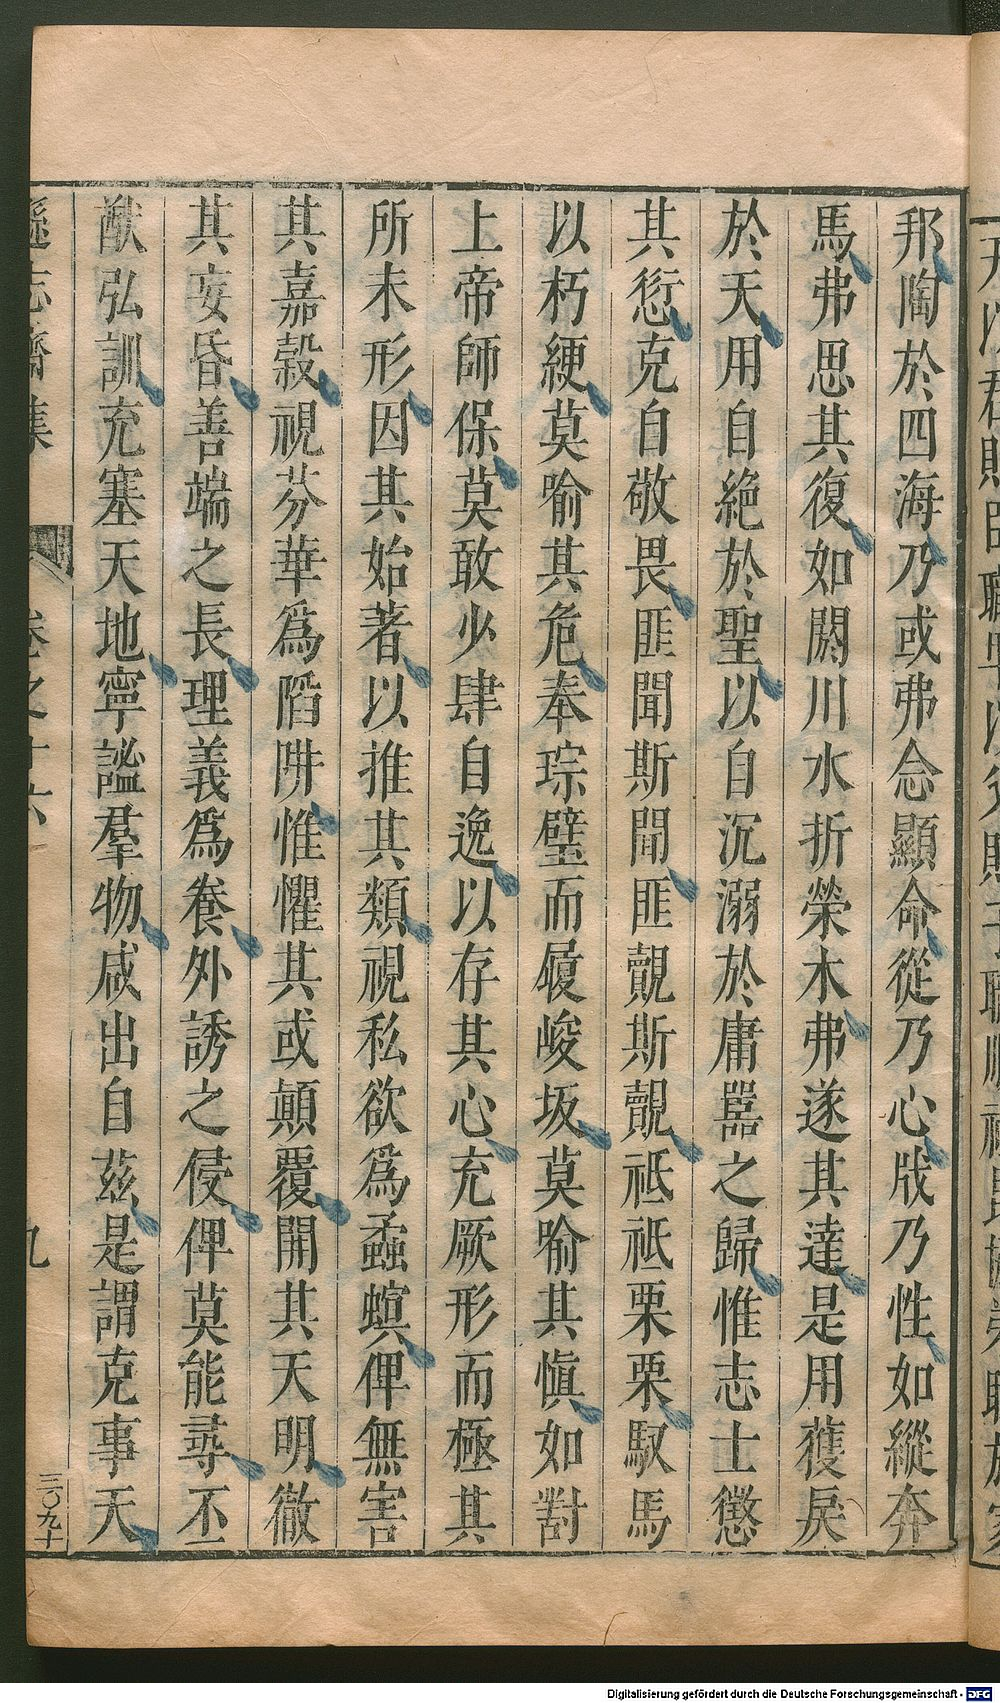 邦陶於四海乃或弗念顯命從乃心戕乃性如縱奔
馬弗思其復如閼川水折榮木弗遂其達是用獲戾
於天用自絕於聖以自沉溺於庸嚚之歸惟志士懲
其愆克自敬畏匪聞斯聞匪覿斯覿祗祗栗栗馭馬
以朽綆莫喻其危奉琮璧而履峻坂莫喻其慎如對
上帝師保莫敢少肆自逸以存其心充厥形而極其
所未形因其始著以推其類視私欲為蟊螟俾無害
其嘉穀視芬華為陷阱惟懼其或顛覆開其天明徹
其妄昏善端之長理義為養外誘之侵俾莫能尋丕
猷弘訓充塞天地寧謐羣物咸出自茲是謂克事天
遜志齋集
卷之十六
九
三〇九十
Digitalisierung gefördert durch die Deutsche Forschungsgemeinschaft - DFG